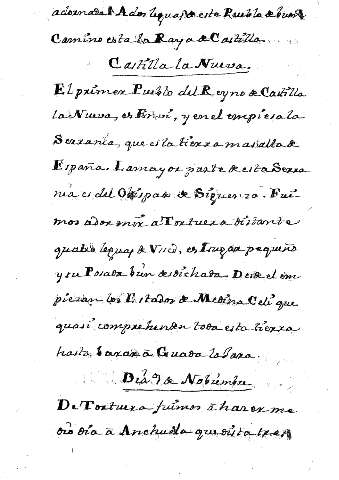 adornada. A dos leguas de este Pueblo de buen
Camino esta la Raya de Castilla.
Castilla la Nueva.
El primer Pueblo del Reyno de Castilla
la Nueva, es y en el empieza la
Serrania, que es la tierra mas alta de
España. La mayor parte de esta Serra
nia es del Obispado de Siguenza. Fui-
mos a dormir a Tortuera distante
quatro leguas de es Lugar pequeño
y su Posada bien desdichada. Desde el em
piezan los Estados de Medina Celi que
quasi comprehenden toda esta tierra
hasta baxar a Guadalaxara.
Dia 9 de Nobiembre
De Tortuera fuimos a hazer me
dio dia a Anchuela que dista tres